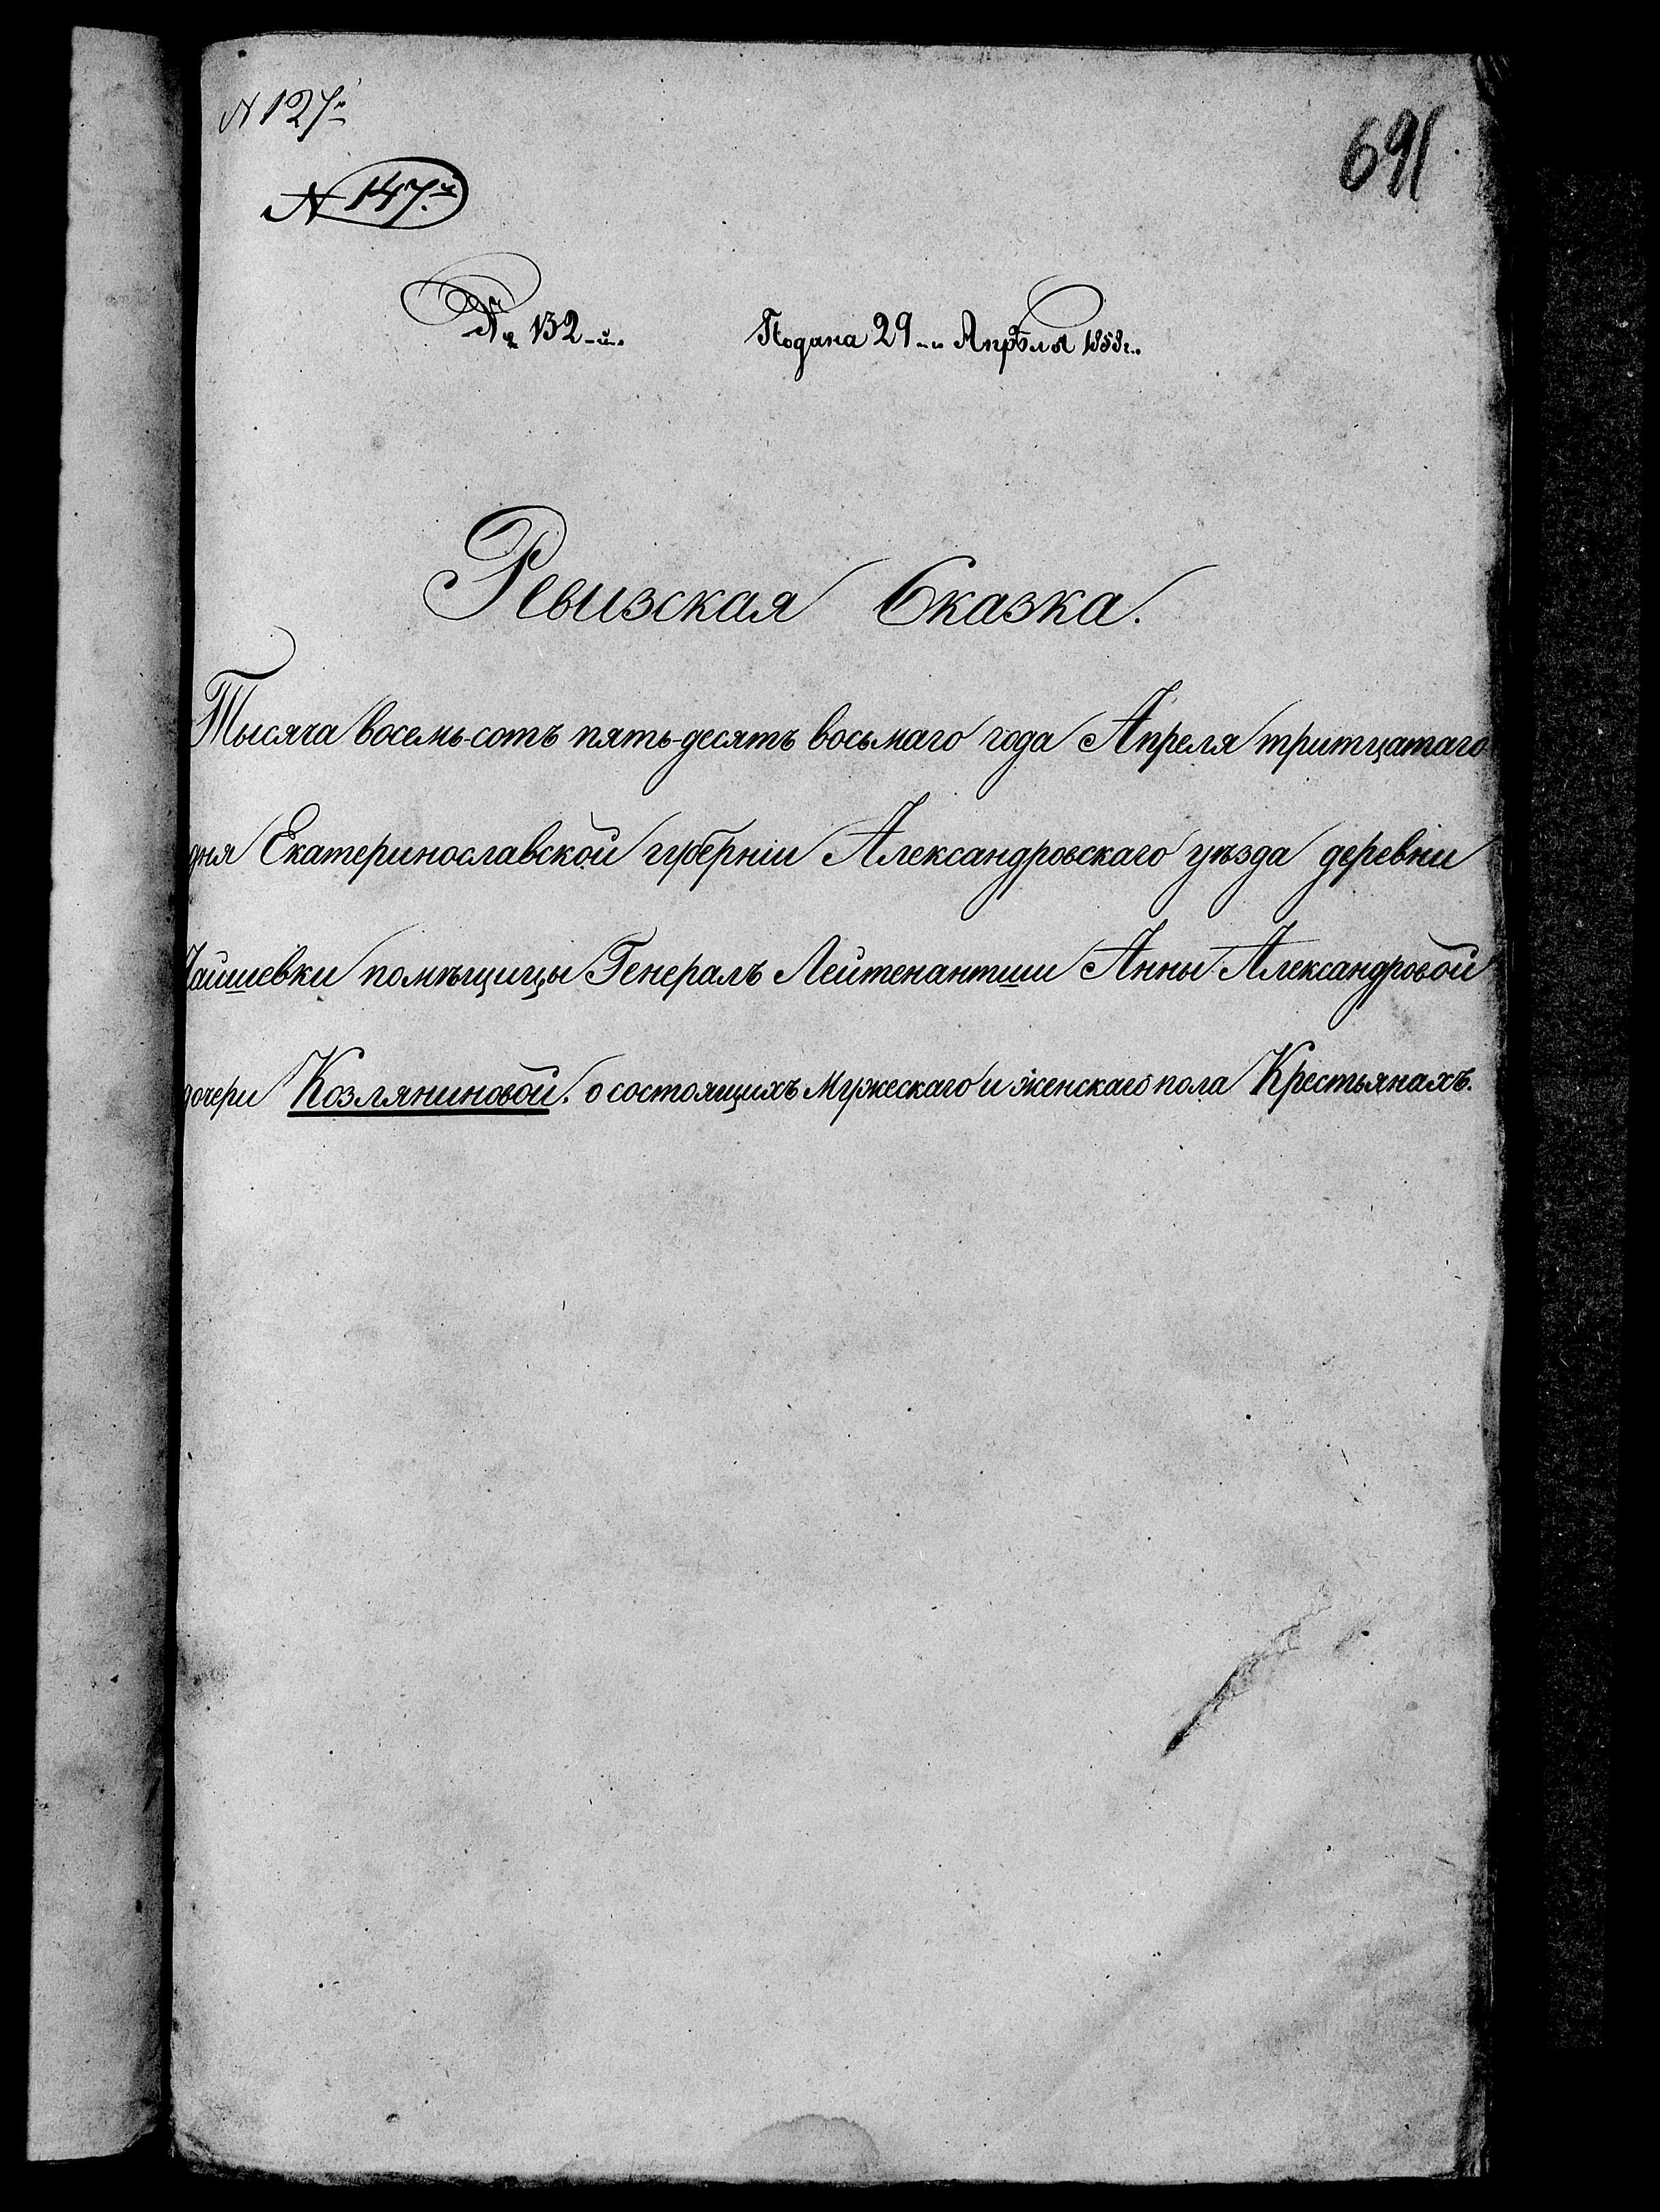 N 127й
691
N 147.й
№ 132-й.
Подана 29-го Апрѣля 1858 г.
Ревизская Сказка.
Тысяча восемь-сотъ пять-десятъ восьмаго года Апреля тритцатаго
дня Екатеринославской губерніи Александровскаго уѣзда деревни
помѣщицы Генералъ Лейтенантши Анны Александровой
дочери Козляниновой. о состоящихъ мужескаго и женскаго пола Крестьянахъ.